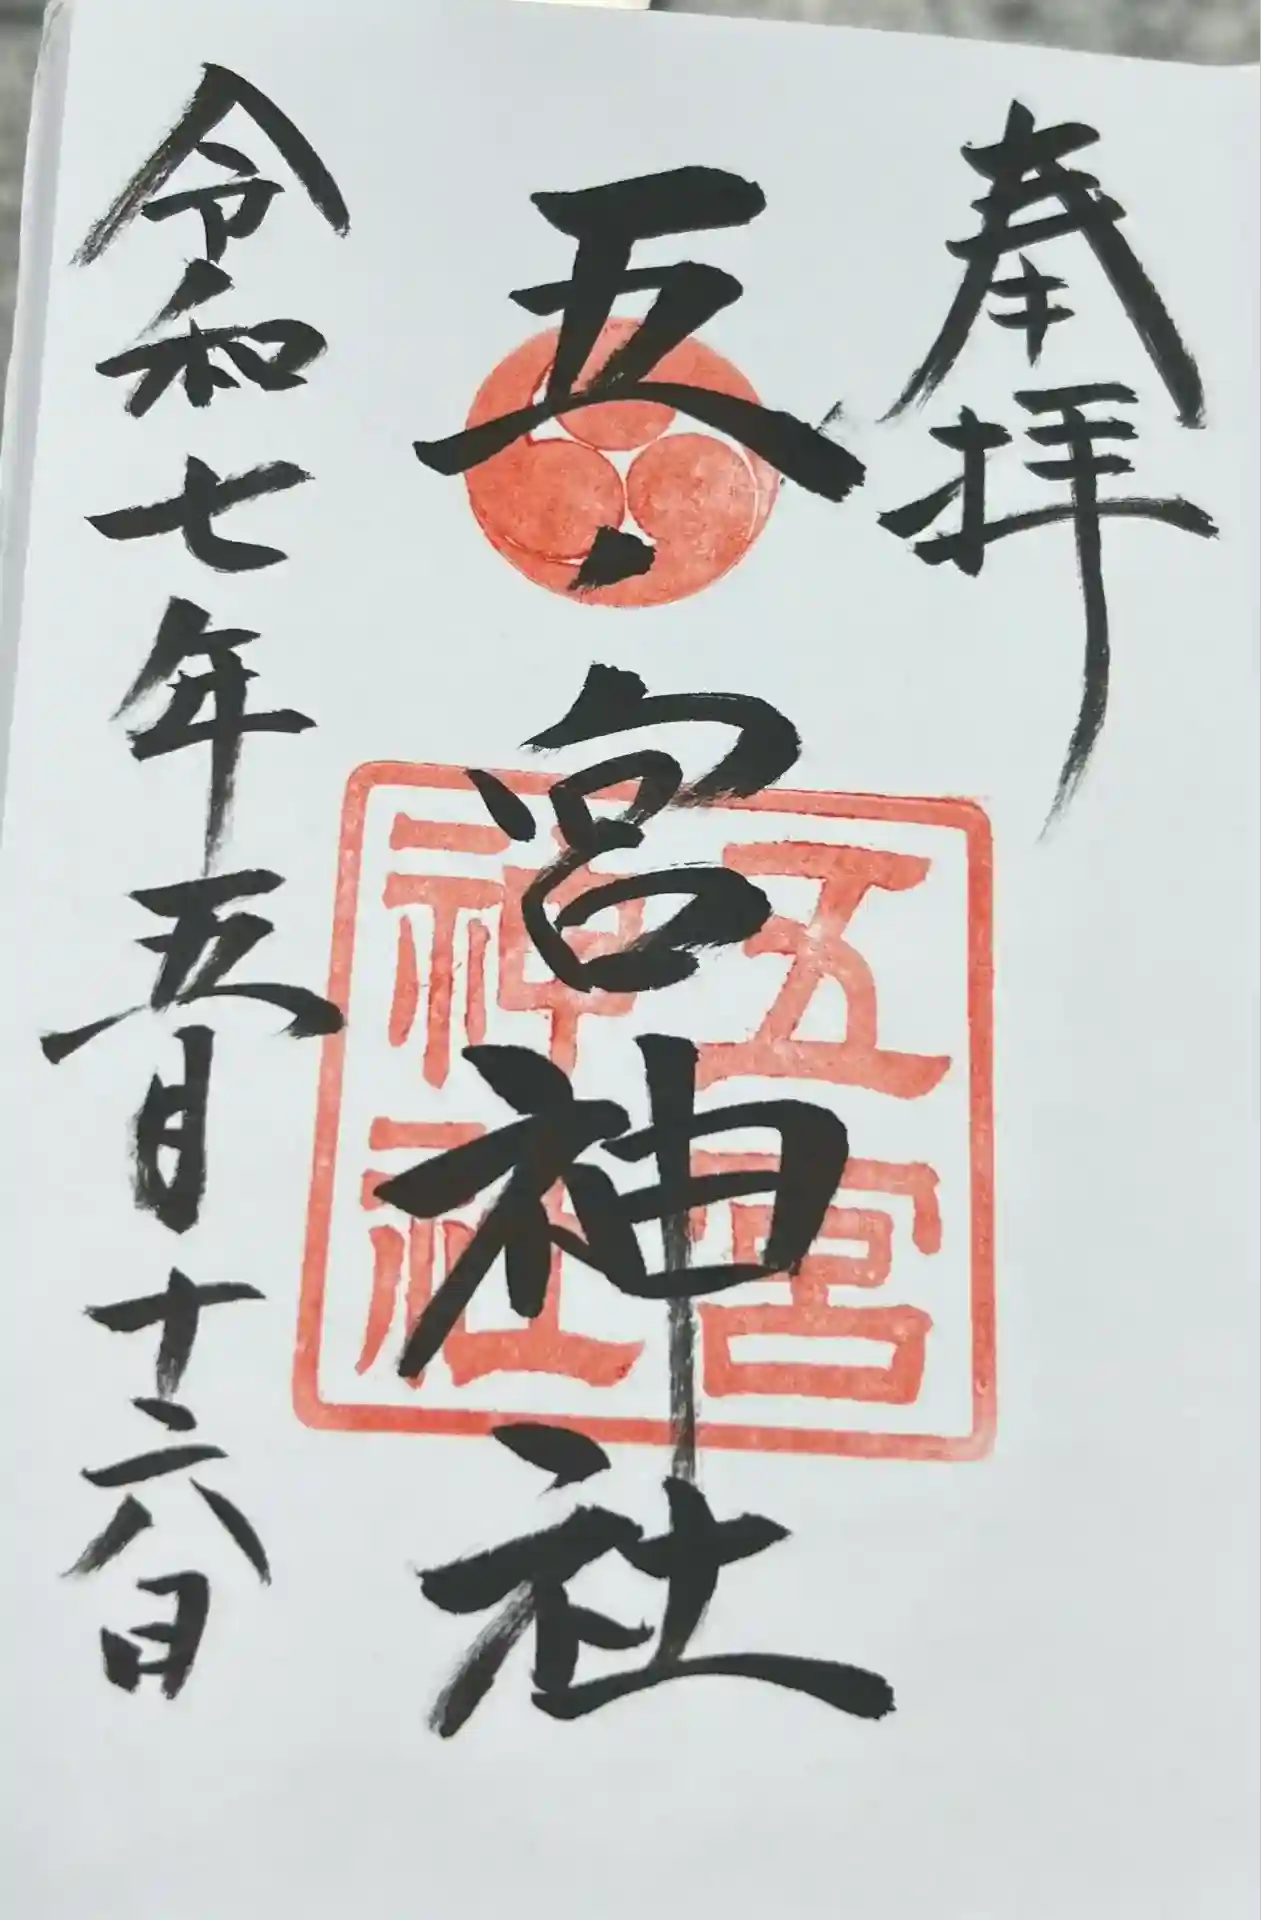 奉拝
五、宮神社
五宮
神社
令和七年五月十六日